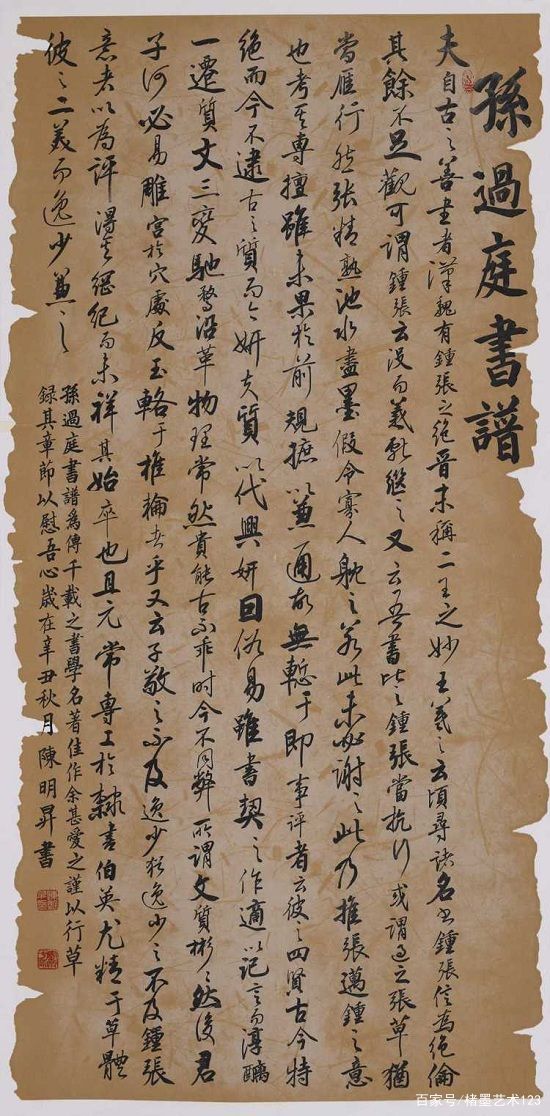 孫過庭書譜
夫自古之善書者漢魏有鍾張之絕晉末稱二王之妙王羲之云頃尋諸名書鍾張信為絕倫
其餘不足觀可謂鍾張云沒而羲獻繼之又云吾書比之鍾張當抗行或謂過之張草猶
當雁行然張精熟池水盡墨假令寡人耽之若此未必謝之此乃推張邁鍾之意
也考其專擅雖未果於前規摭以兼通故無慙于即事評者云彼之四賢古今特
絕而今不逮古古質而今妍夫質以代興妍因俗易雖書契之作適以記言而淳醨
一遷質文三變馳騖沿革物理常然貴能古不乖時今不同弊所謂文質彬彬然後君
子何必易雕宮於穴處反玉輅于椎輪者乎又云子敬之不及逸少猶逸少之不及鍾張
意者以為評得其綱紀而未祥其始卒也且元常專工於隸書伯英尤精于草體
彼之二美而逸少兼之
孫過庭書譜為傳千載之書學名著佳作余甚愛之謹以行草
録其章節以慰吾心歲在辛丑秋月陳明昇書
百家号/楮墨艺术123